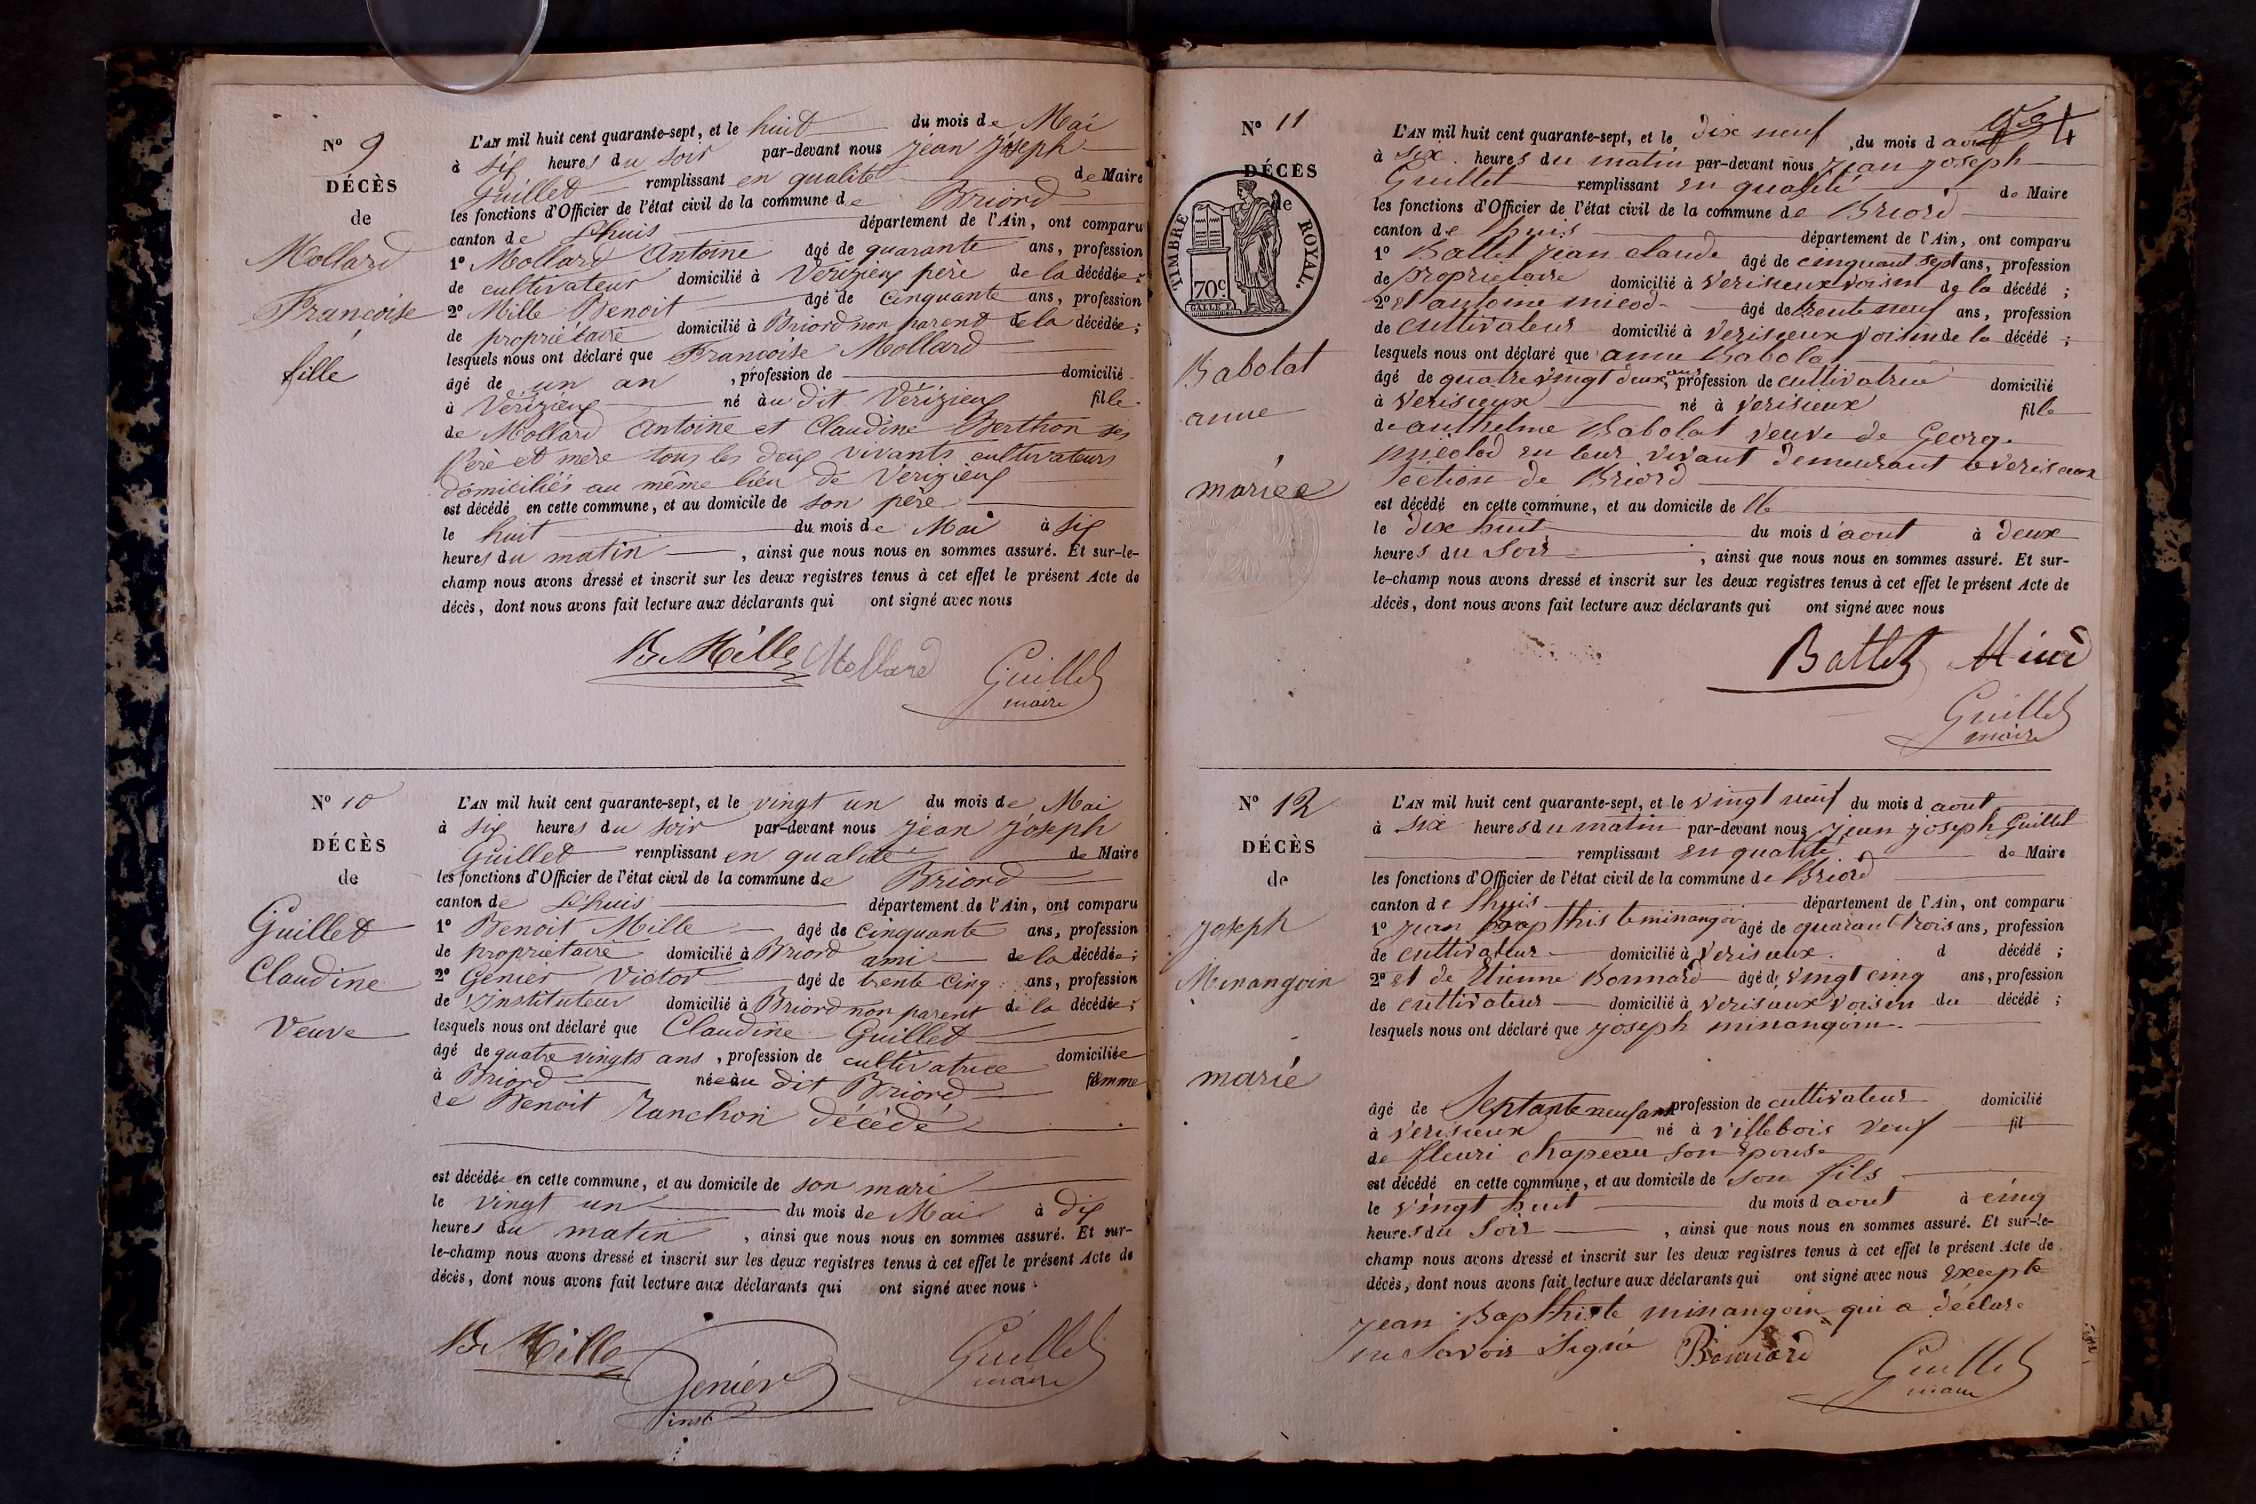 N° 9
DÉCÈS
de
Mollard
Françoise
fille
L'AN mil huit cent quarante-sept, et le huit du mois de Mai
à six heures du soir par-devant nous jean joseph
Guillet remplissant en qualité de Maire
les fonctions d'Officier de l'état civil de la commune de Briord
canton de Lhuis département de l'Ain, ont comparu
1° Mollard Antoine âgé de quarante ans, profession
de cultivateur domicilié à Vérizieu père de la décédée ;
2° Mille Benoit âgé de cinquante ans, profession
de propriétaire domicilié à Briord non parent de la décédée ;
lesquels nous ont déclaré que Françoise Mollard
âgé de un an , profession de domicilié
à Vérizieu né au dit Vérizieu fille
de Mollard Antoine et Claudine Berthon ses
père et mère tous les deux vivants cultivateurs
domiciliés au même lieu de Verizieu
est décédé en cette commune, et au domicile de son père
le huit du mois de Mai à six
heures du matin , ainsi que nous nous en sommes assuré. Et sur-le-
champ nous avons dressé et inscrit sur les deux registres tenus à cet effet le présent Acte de
décès, dont nous avons fait lecture aux déclarants qui ont signé avec nous
Bt Mille Mollard Guillet
maire
N° 10
DÉCÈS
de
Guillet
Claudine
Veuve
L'AN mil huit cent quarante-sept, et le vingt un du mois de Mai
à six heures du soir par-devant nous jean joseph
Guillet remplissant en qualité de Maire
les fonctions d'Officier de l'état civil de la commune de Briord
canton de Lhuis département de l'Ain, ont comparu
1° Benoit Mille âgé de cinquante ans, profession
de propriétaire domicilié à Briord ami de la décédée ;
2° Genier Victor âgé de trente cinq ans, profession
de Instituteur domicilié à Briord non parent de la décédée ;
lesquels nous ont déclaré que Claudine Guillet
âgé de quatre vingts ans , profession de cultivatrice domiciliée
à Briord née au dit Briord femme
de Benoit Ranchon décédé
est décédée en cette commune, et au domicile de son mari
le vingt un du mois de Mai à dix
heures du matin , ainsi que nous nous en sommes assuré. Et sur-
le-champ nous avons dressé et inscrit sur les deux registres tenus à cet effet le présent Acte de
décès, dont nous avons fait lecture aux déclarants qui ont signé avec nous
Bt Mille Genier Guillet
inst maire
4
N° 11
DÉCÈS
de
TIMBRE ROYAL.
70c
Babolat
anne
mariée
L'AN mil huit cent quarante-sept, et le dix neuf du mois d aout
à six heures du matin par-devant nous jean joseph
Guillet remplissant en qualité de Maire
les fonctions d'Officier de l'état civil de la commune de Briord
canton de lhuis département de l'Ain, ont comparu
1° Ballet jean claude âgé de cinquant sept ans, profession
de propriétaire domicilié à Verisieux voisin de la décédé ;
2° et antoine mieod âgé de trente neuf ans, profession
de cultivateur domicilié à Verisieux voisin de la décédé ;
lesquels nous ont déclaré que anne Babolat
âgé de quatre vingt deux ans, profession de cultivatrice domicilié
à Verisieux né à Verisieux fille
de anthelme Babolat veuve de George
en leur vivant demeurant a verisieux
section de Briord
est décédé en cette commune, et au domicile de
le dix huit du mois d'aout à deux
heures du soir , ainsi que nous nous en sommes assuré. Et sur-
le-champ nous avons dressé et inscrit sur les deux registres tenus à cet effet le présent Acte de
décès, dont nous avons fait lecture aux déclarants qui ont signé avec nous
Ballet
Guillet
maire
N° 12
DÉCÈS
de
joseph
Minangoin
marié
L'AN mil huit cent quarante-sept, et le vingt neuf du mois d aout
à six heures du matin par-devant nous jean joseph Guillet
remplissant en qualité de Maire
les fonctions d'Officier de l'état civil de la commune de Briord
canton de lhuis département de l'Ain, ont comparu
1° jean bapthiste minangoin âgé de quarant trois ans, profession
de cultivateur domicilié à Verisieux d décédé ;
2° et de Etienne Bonnard âgé de vingt cinq ans, profession
de cultivateur domicilié à verisieux voisin du décédé ;
lesquels nous ont déclaré que joseph minangoin
âgé de Septante neuf ans profession de cultivateur domicilié
à verisieux né à villebois veuf fil
de fleuri chapeau son épouse
est décédé en cette commune, et au domicile de son fils
le vingt huit du mois d aout à cinq
heures du soir , ainsi que nous nous en sommes assuré. Et sur-le-
champ nous avons dressé et inscrit sur les deux registres tenus à cet effet le présent Acte de
décès, dont nous avons fait lecture aux déclarants qui ont signé avec nous excepte
jean Bapthiste minangoin qui a déclare
ne savoir signé Bonnard Guillet
maire